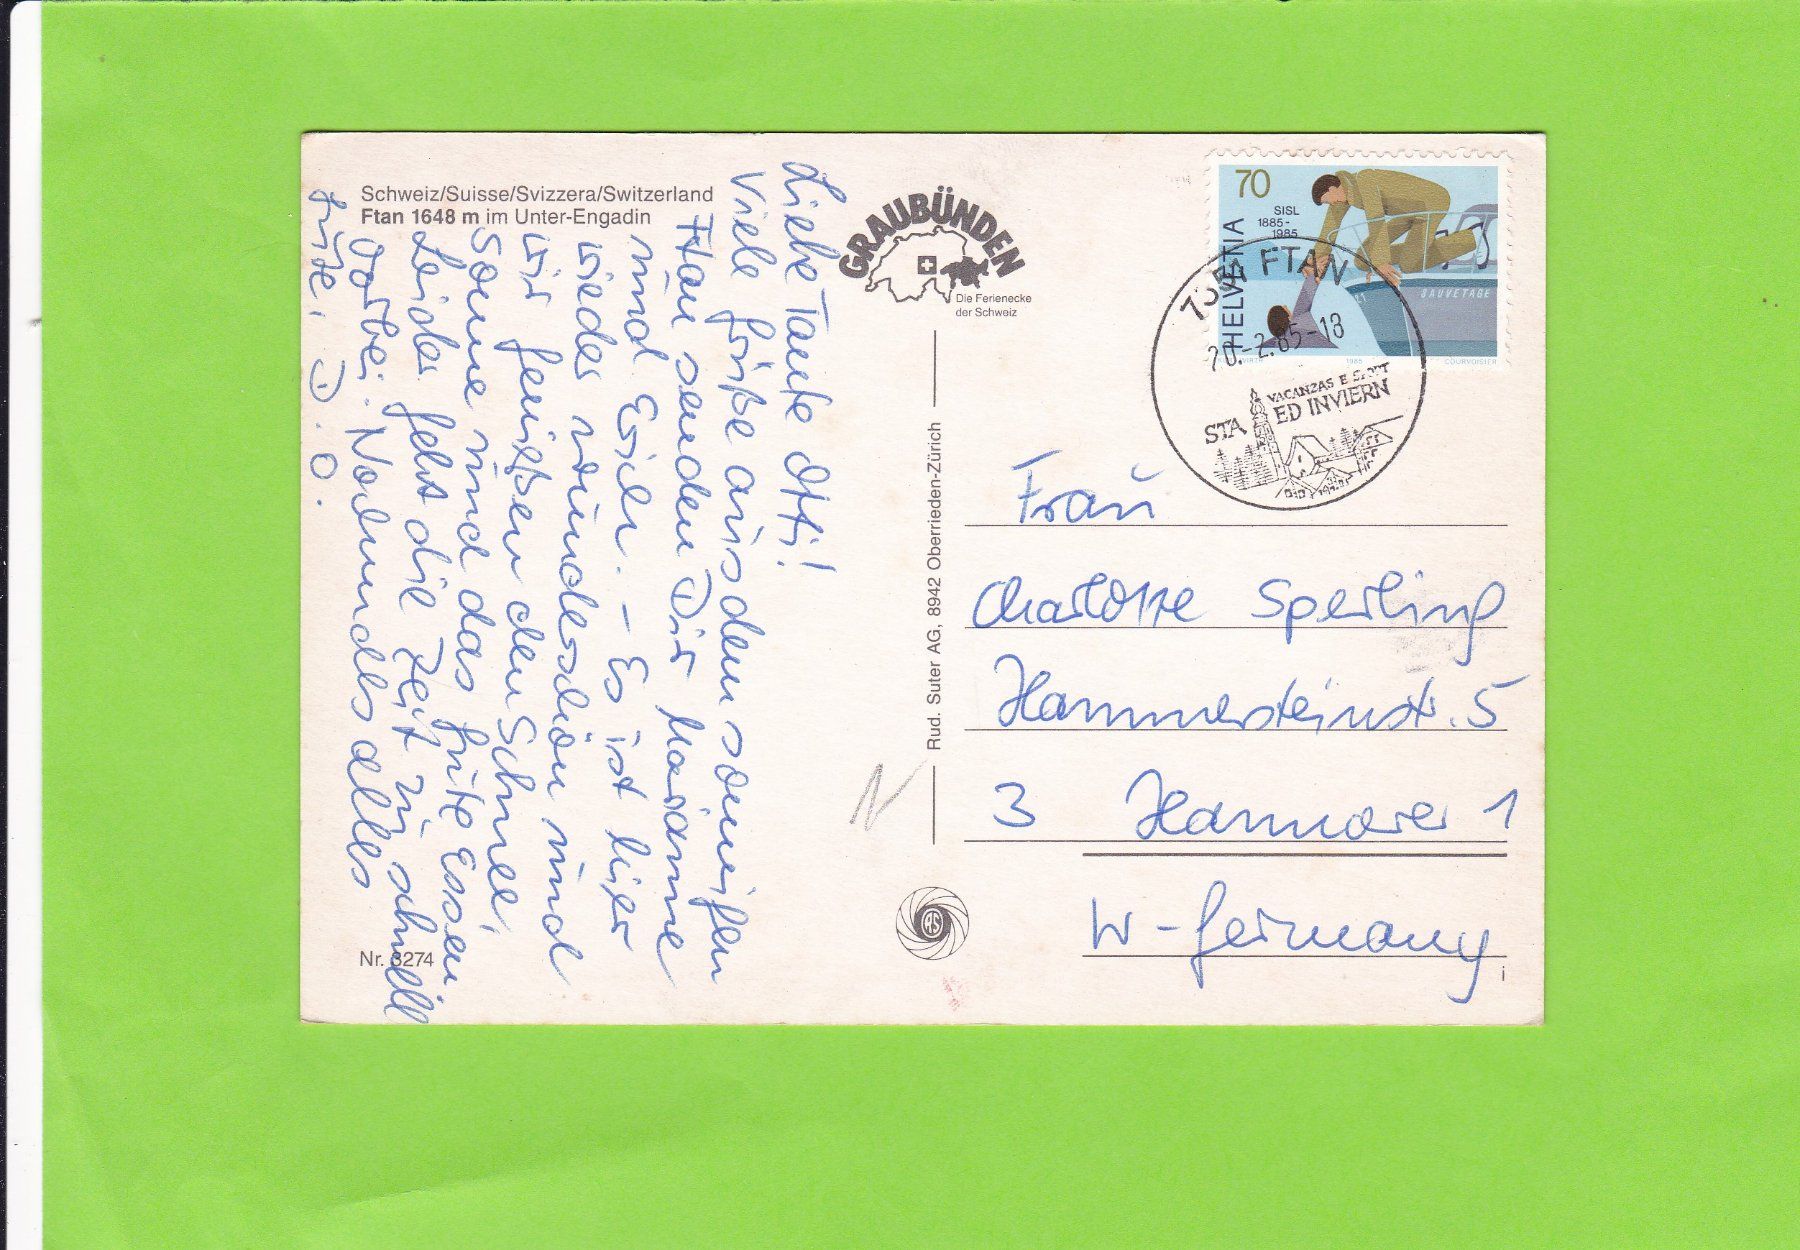 Schweiz/Suisse/Svizzera/Switzerland
Ftan 1648 m im Unter-Engadin
Liebe Tante Otti!
Viele Grüße aus dem sonnigen
Ftan senden Dir Marianne
und Erich. – Es ist hier
wieder wunderschön und
wir genießen den Schnee,
Sonne und das gute Essen
Leider geht die Zeit zu schnell
vorbei. Nochmals alles
Gute, D. O.
Nr. 3274
GRAUBÜNDEN
Die Ferienecke
der Schweiz
Rud. Suter AG, 8942 Oberrieden-Zürich
RS
70
SISL
1885-
1985
HELVETIA
SAUVETAGE
1985
COURVOISIER
FTAN
20.-2.85-18
VACANZAS E
STA ED INVIERN
Frau
Charlotte Sperling
Hammersteinstr. 5
3 Hannover 1
W-Germany
i